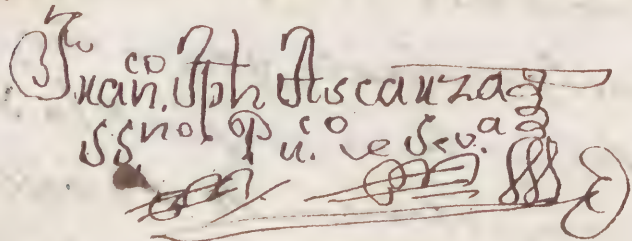 Fran.co Jph Ascarza
SSno Pu.co